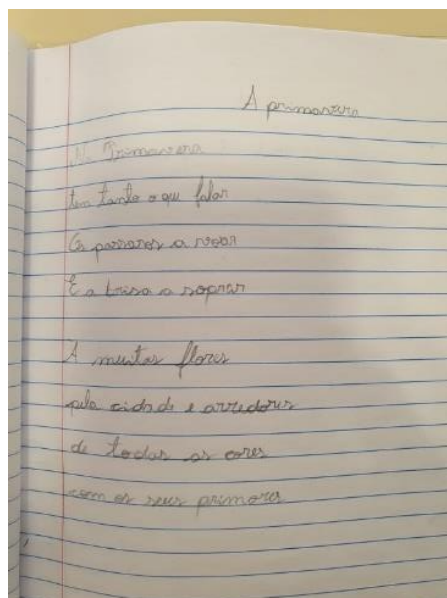 A primavera
Na Primavera
tem tanto o que falar
Os passaros a voar
E a brisa a soprar
A muitas flores
pela cidade e arredores
de todas as cores
com os seus primores